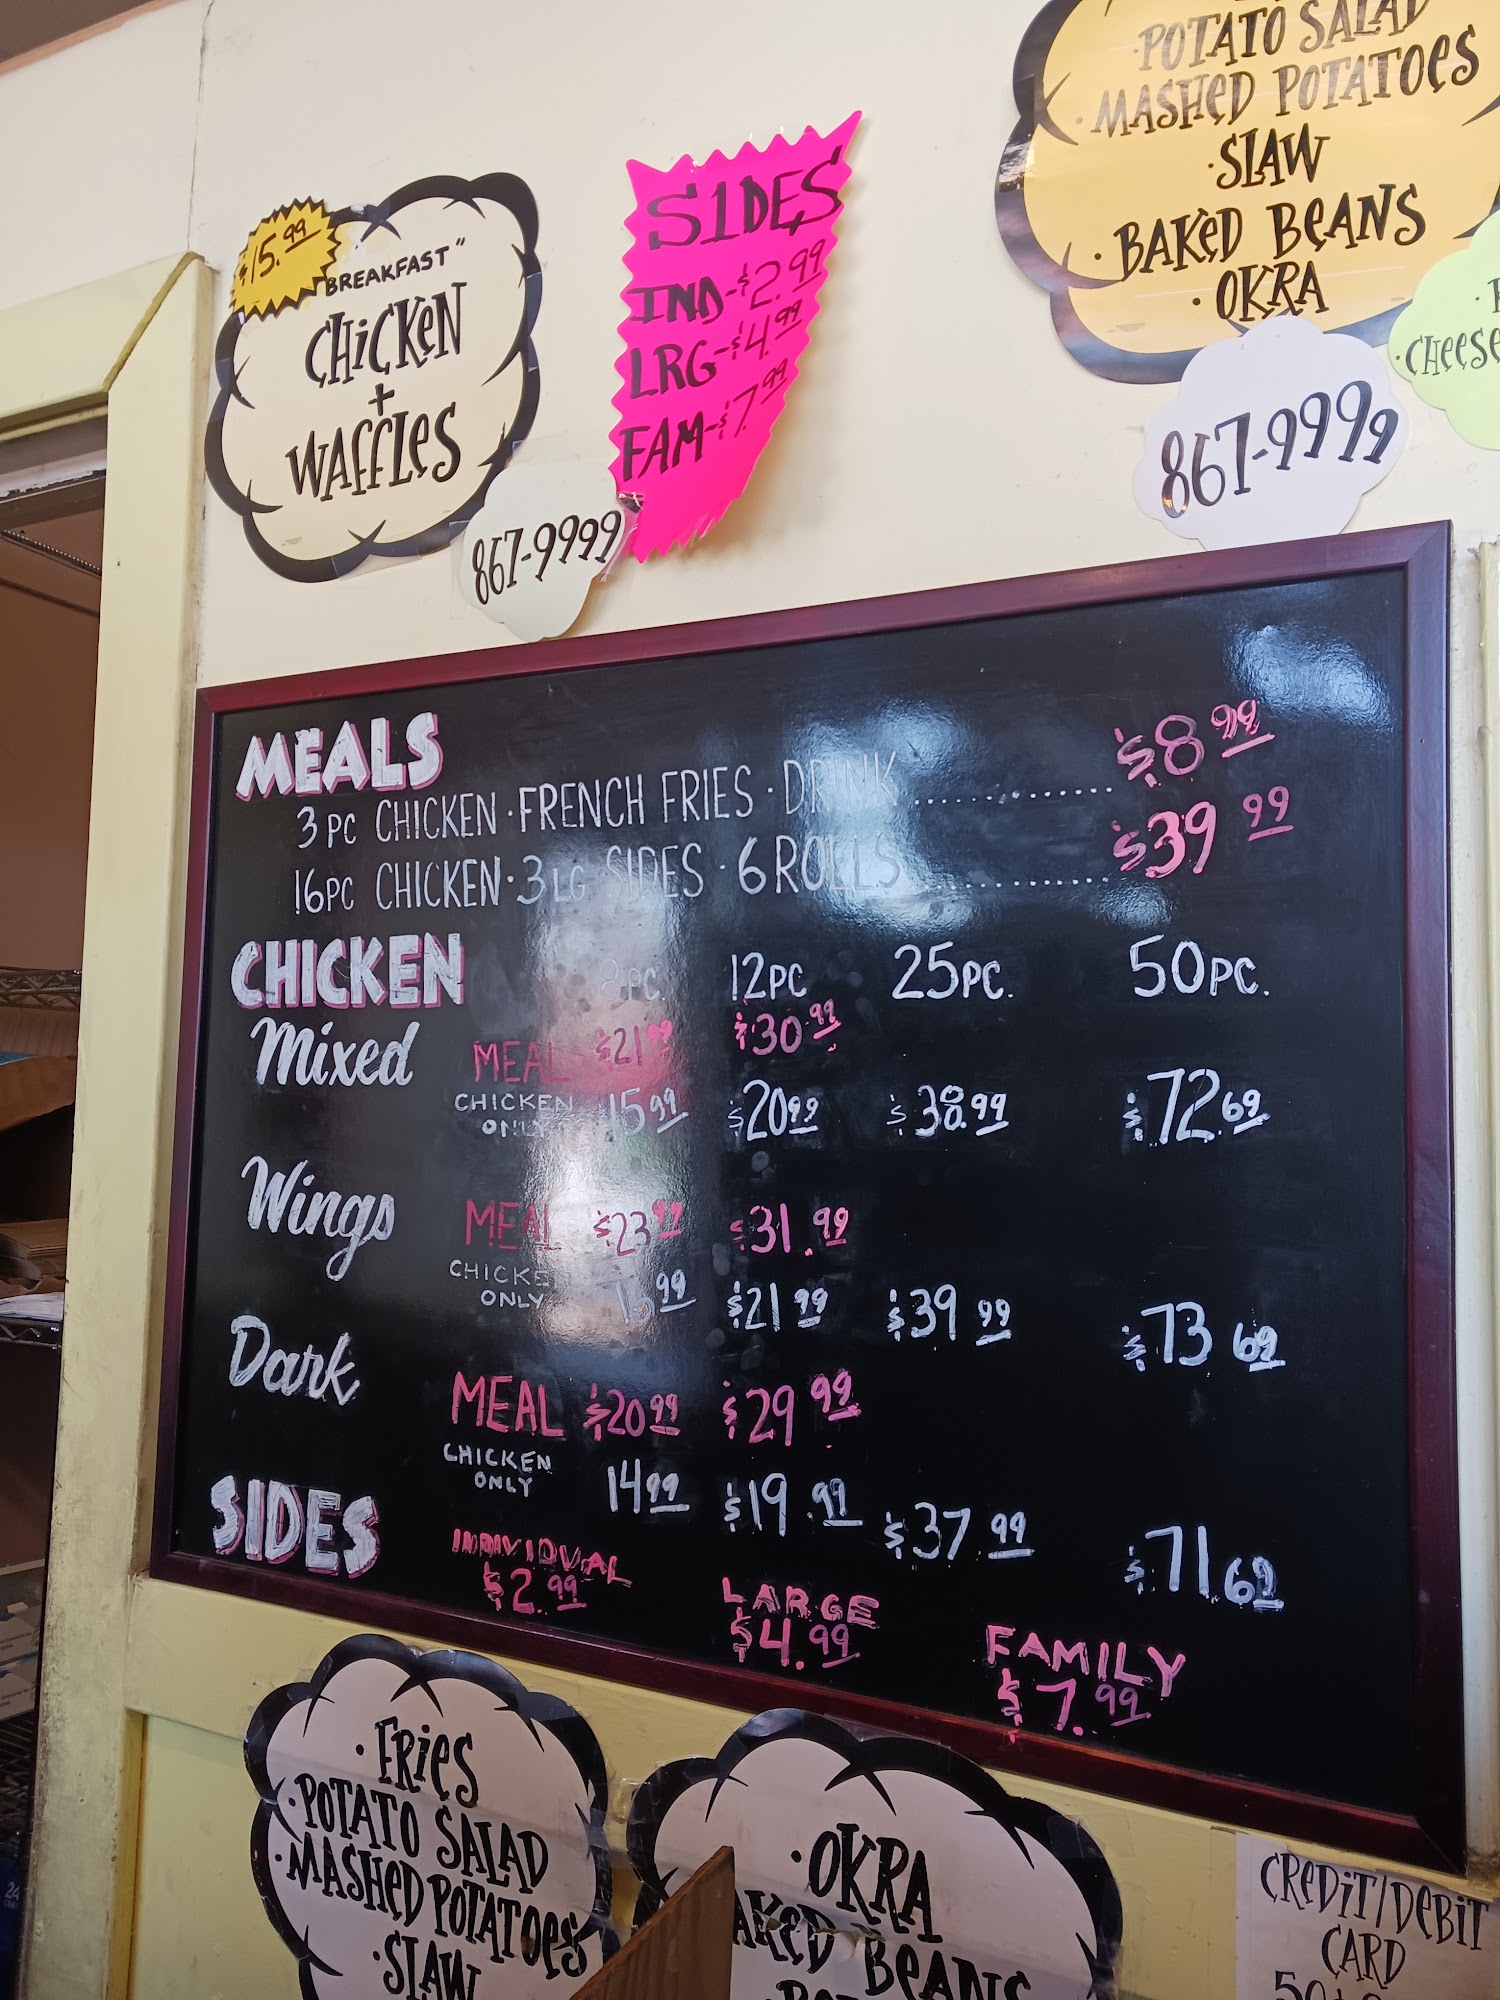 POTATO SALAD
· MASHED POTATOES
· SLAW
· BAKED BEANS
· OKRA
$15.99
"BREAKFAST"
CHICKEN
+
WAFFLES
867-9999
SIDES
IND-$2.99
LRG-$4.99
FAM-$7.99
867-9999
· CHEESE
MEALS
3 PC CHICKEN · FRENCH FRIES · DRINK .............. $8.99
16PC CHICKEN · 3 LG SIDES · 6 ROLLS .............. $39 99
CHICKEN 8PC. 12PC 25PC. 50PC.
Mixed MEAL $21.99 $30.99
CHICKEN ONLY $15 99 $20 99 $38.99 $72.69
Wings MEAL $23 99 $31.99
CHICKEN ONLY 16 99 $21 99 $39 99 $73 69
Dark MEAL $20 99 $29 99
CHICKEN ONLY 14 99 $19.99 $37.99 $71.69
SIDES INDIVIDUAL LARGE FAMILY
$2.99 $4.99 $7.99
· FRIES
· POTATO SALAD
· MASHED POTATOES
· SLAW
· OKRA
BAKED BEANS
CREDIT/DEBIT
CARD